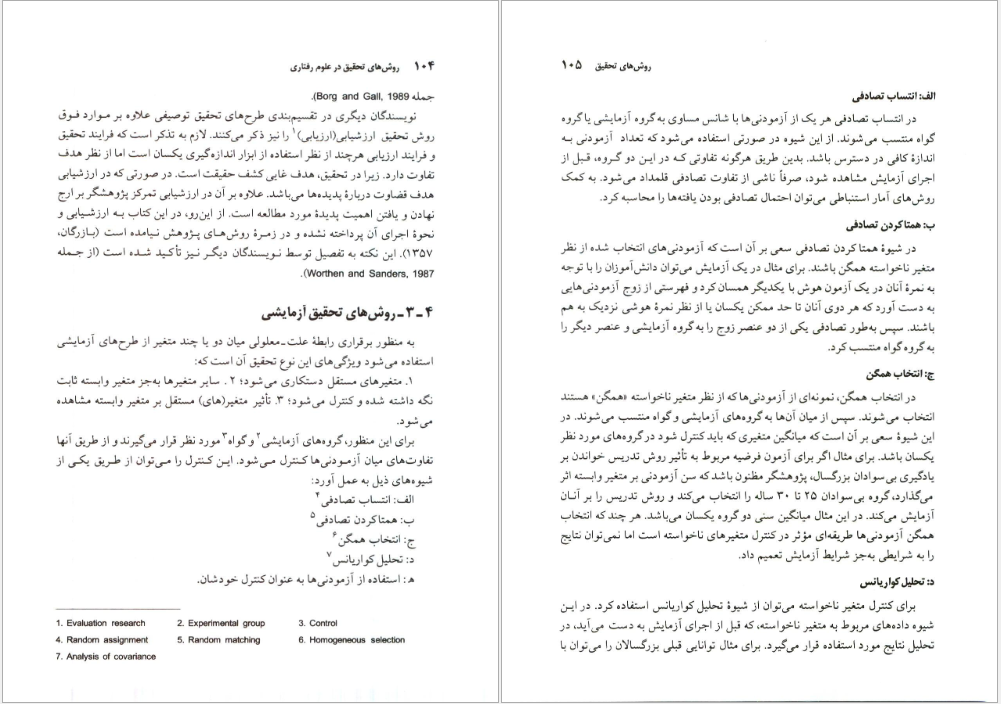 ۱۰۴ روش‌های تحقیق در علوم رفتاری
جمله Borg and Gall, 1989).
نویسندگان دیگری در تقسیم‌بندی طرح‌های تحقیق توصیفی علاوه بر موارد فوق
روش تحقیق ارزشیابی(ارزیابی)۱ را نیز ذکر می‌کنند. لازم به تذکر است که فرایند تحقیق
و فرایند ارزیابی هرچند از نظر استفاده از ابزار اندازه‌گیری یکسان است اما از نظر هدف
تفاوت دارد. زیرا در تحقیق، هدف غایی کشف حقیقت است. در صورتی که در ارزشیابی
هدف قضاوت دربارهٔ پدیده‌ها می‌باشد. علاوه بر آن در ارزشیابی تمرکز پژوهشگر بر ارج
نهادن و یافتن اهمیت پدیدهٔ مورد مطالعه است. از این‌رو، در این کتاب به ارزشیابی و
نحوهٔ اجرای آن پرداخته نشده و در زمرهٔ روش‌های پژوهش نیامده است (بازرگان،
۱۳۵۷). این نکته به تفصیل توسط نویسندگان دیگر نیز تأکید شده است (از جمله
Worthen and Sanders, 1987).
۴ـ۳ـ روش‌های تحقیق آزمایشی
به منظور برقراری رابطهٔ علت‌ـ‌معلولی میان دو یا چند متغیر از طرح‌های آزمایشی
استفاده می‌شود ویژگی‌های این نوع تحقیق آن است که:
۱. متغیرهای مستقل دستکاری می‌شود؛ ۲. سایر متغیرها به‌جز متغیر وابسته ثابت
نگه داشته شده و کنترل می‌شود؛ ۳. تأثیر متغیر(های) مستقل بر متغیر وابسته مشاهده
می‌شود.
برای این منظور، گروه‌های آزمایشی۲ و گواه۳ مورد نظر قرار می‌گیرند و از طریق آنها
تفاوت‌های میان آزمودنی‌ها کنترل می‌شود. این کنترل را می‌توان از طریق یکی از
شیوه‌های ذیل به عمل آورد:
الف: انتساب تصادفی۴
ب: همتاکردن تصادفی۵
ج: انتخاب همگن۶
د: تحلیل کواریانس۷
ه: استفاده از آزمودنی‌ها به عنوان کنترل خودشان.
1. Evaluation research 2. Experimental group 3. Control
4. Random assignment 5. Random matching 6. Homogeneous selection
7. Analysis of covariance
روش‌های تحقیق ۱۰۵
الف: انتساب تصادفی
در انتساب تصادفی هر یک از آزمودنی‌ها با شانس مساوی به گروه آزمایشی یا گروه
گواه منتسب می‌شوند. از این شیوه در صورتی استفاده می‌شود که تعداد آزمودنی به
اندازهٔ کافی در دسترس باشد. بدین طریق هرگونه تفاوتی که در این دو گروه، قبل از
اجرای آزمایش مشاهده شود، صرفاً ناشی از تفاوت تصادفی قلمداد می‌شود. به کمک
روش‌های آمار استنباطی می‌توان احتمال تصادفی بودن یافته‌ها را محاسبه کرد.
ب: همتاکردن تصادفی
در شیوهٔ همتاکردن تصادفی سعی بر آن است که آزمودنی‌های انتخاب شده از نظر
متغیر ناخواسته همگن باشند. برای مثال در یک آزمایش می‌توان دانش‌آموزان را با توجه
به نمرهٔ آنان در یک آزمون هوش با یکدیگر همسان کرد و فهرستی از زوج آزمودنی‌هایی
به دست آورد که هر دوی آنان تا حد ممکن یکسان یا از نظر نمرهٔ هوشی نزدیک به هم
باشند. سپس به‌طور تصادفی یکی از دو عنصر زوج را به گروه آزمایشی و عنصر دیگر را
به گروه گواه منتسب کرد.
ج: انتخاب همگن
در انتخاب همگن، نمونه‌ای از آزمودنی‌ها که از نظر متغیر ناخواسته «همگن» هستند
انتخاب می‌شوند. سپس از میان آن‌ها به گروه‌های آزمایشی و گواه منتسب می‌شوند. در
این شیوهٔ سعی بر آن است که میانگین متغیری که باید کنترل شود در گروه‌های مورد نظر
یکسان باشد. برای مثال اگر برای آزمون فرضیه مربوط به تأثیر روش تدریس خواندن بر
یادگیری بی‌سوادان بزرگسال، پژوهشگر مظنون باشد که سن آزمودنی بر متغیر وابسته اثر
می‌گذارد، گروه بی‌سوادان ۲۵ تا ۳۰ ساله را انتخاب می‌کند و روش تدریس را بر آنان
آزمایش می‌کند. در این مثال میانگین سنی دو گروه یکسان می‌باشد. هر چند که انتخاب
همگن آزمودنی‌ها طریقه‌ای مؤثر در کنترل متغیرهای ناخواسته است اما نمی‌توان نتایج
را به شرایطی به‌جز شرایط آزمایش تعمیم داد.
د: تحلیل کواریانس
برای کنترل متغیر ناخواسته می‌توان از شیوهٔ تحلیل کواریانس استفاده کرد. در این
شیوه داده‌های مربوط به متغیر ناخواسته، که قبل از اجرای آزمایش به دست می‌آید، در
تحلیل نتایج مورد استفاده قرار می‌گیرد. برای مثال توانایی قبلی بزرگسالان را می‌توان با